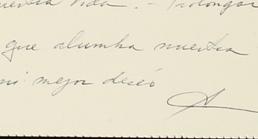 vida. - Prolongar
que alumba nuestra
mi mejor deseo